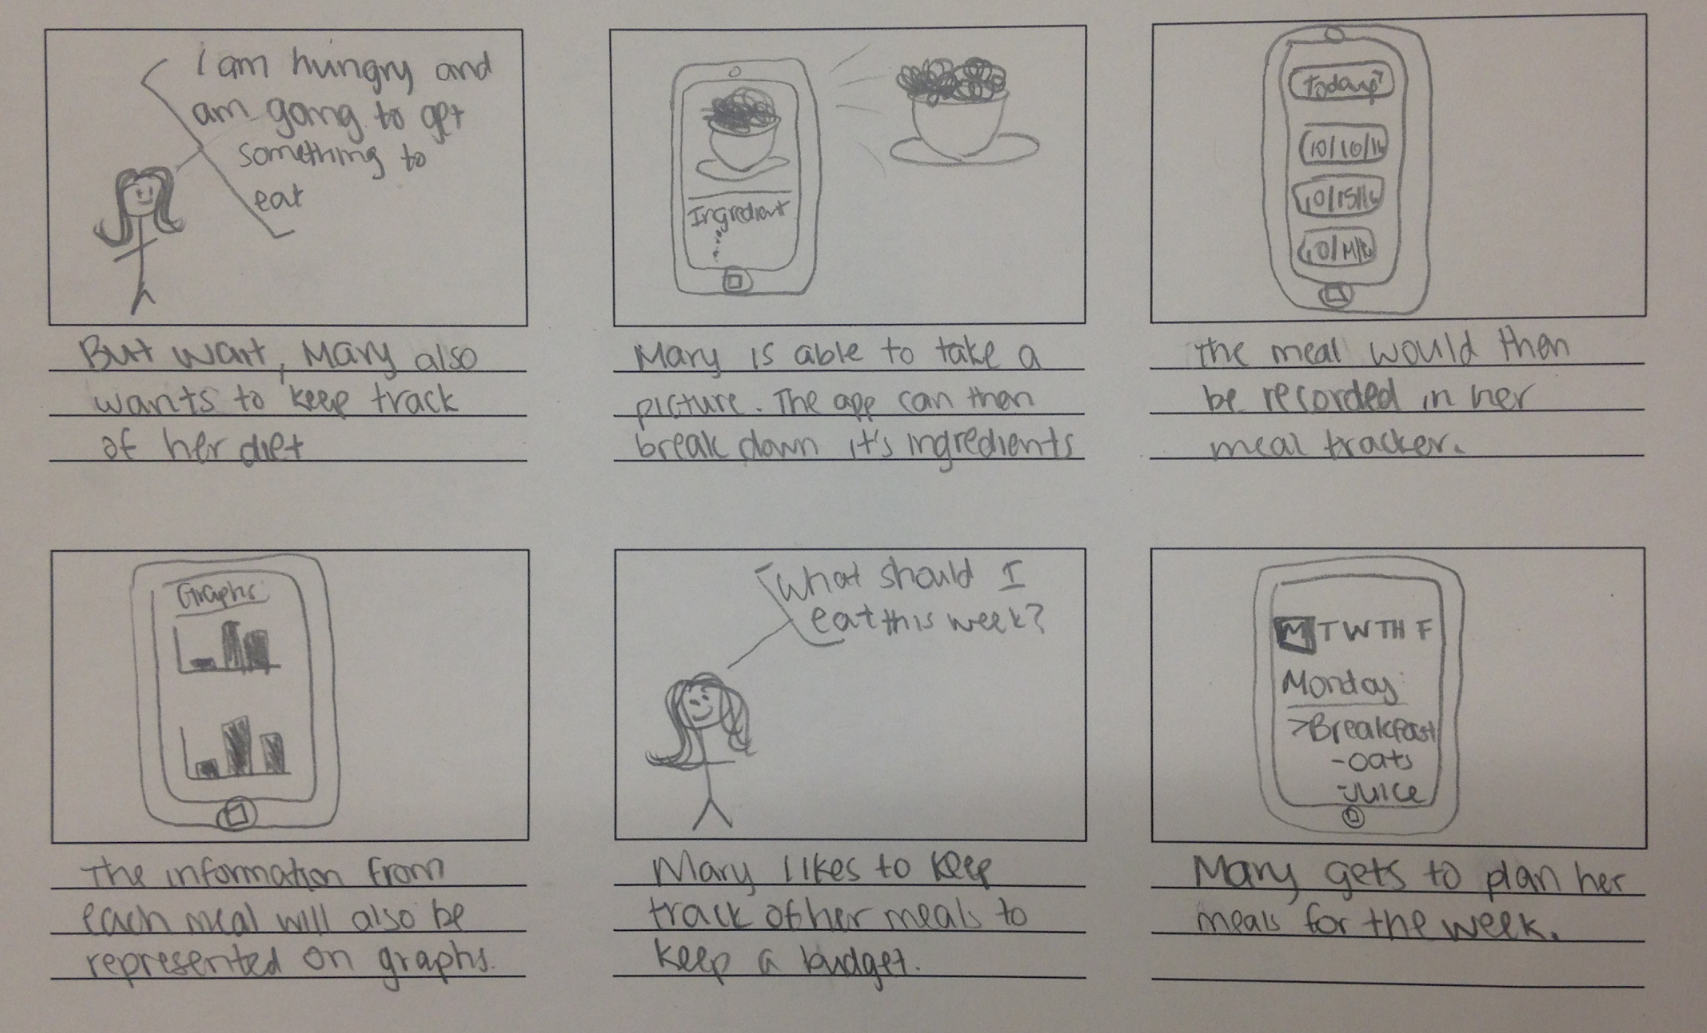 I am hungry and
am going to get
something to
eat
But wait, Mary also
wants to keep track
of her diet
Ingredient
Mary is able to take a
picture. The app can then
break down it's ingredients
Today
10/16/16
10/15/16
The meal would then
be recorded in her
meal tracker.
Graphs
The information from
each meal will also be
represented on graphs.
What should I
eat this week?
Mary likes to keep
track of her meals to
keep a budget.
M T W TH F
Monday
>Breakfast
-oats
-juice
Mary gets to plan her
meals for the week.